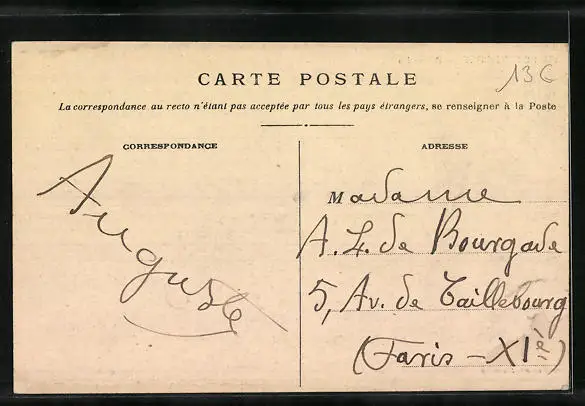 13 €
CARTE POSTALE
La correspondance au recto n'étant pas acceptée par tous les pays étrangers, se renseigner à la Poste
CORRESPONDANCE
ADRESSE
Auguste
Madame
A. L. de Bourgade
5, Av. de Taillebourg
(Paris - XI